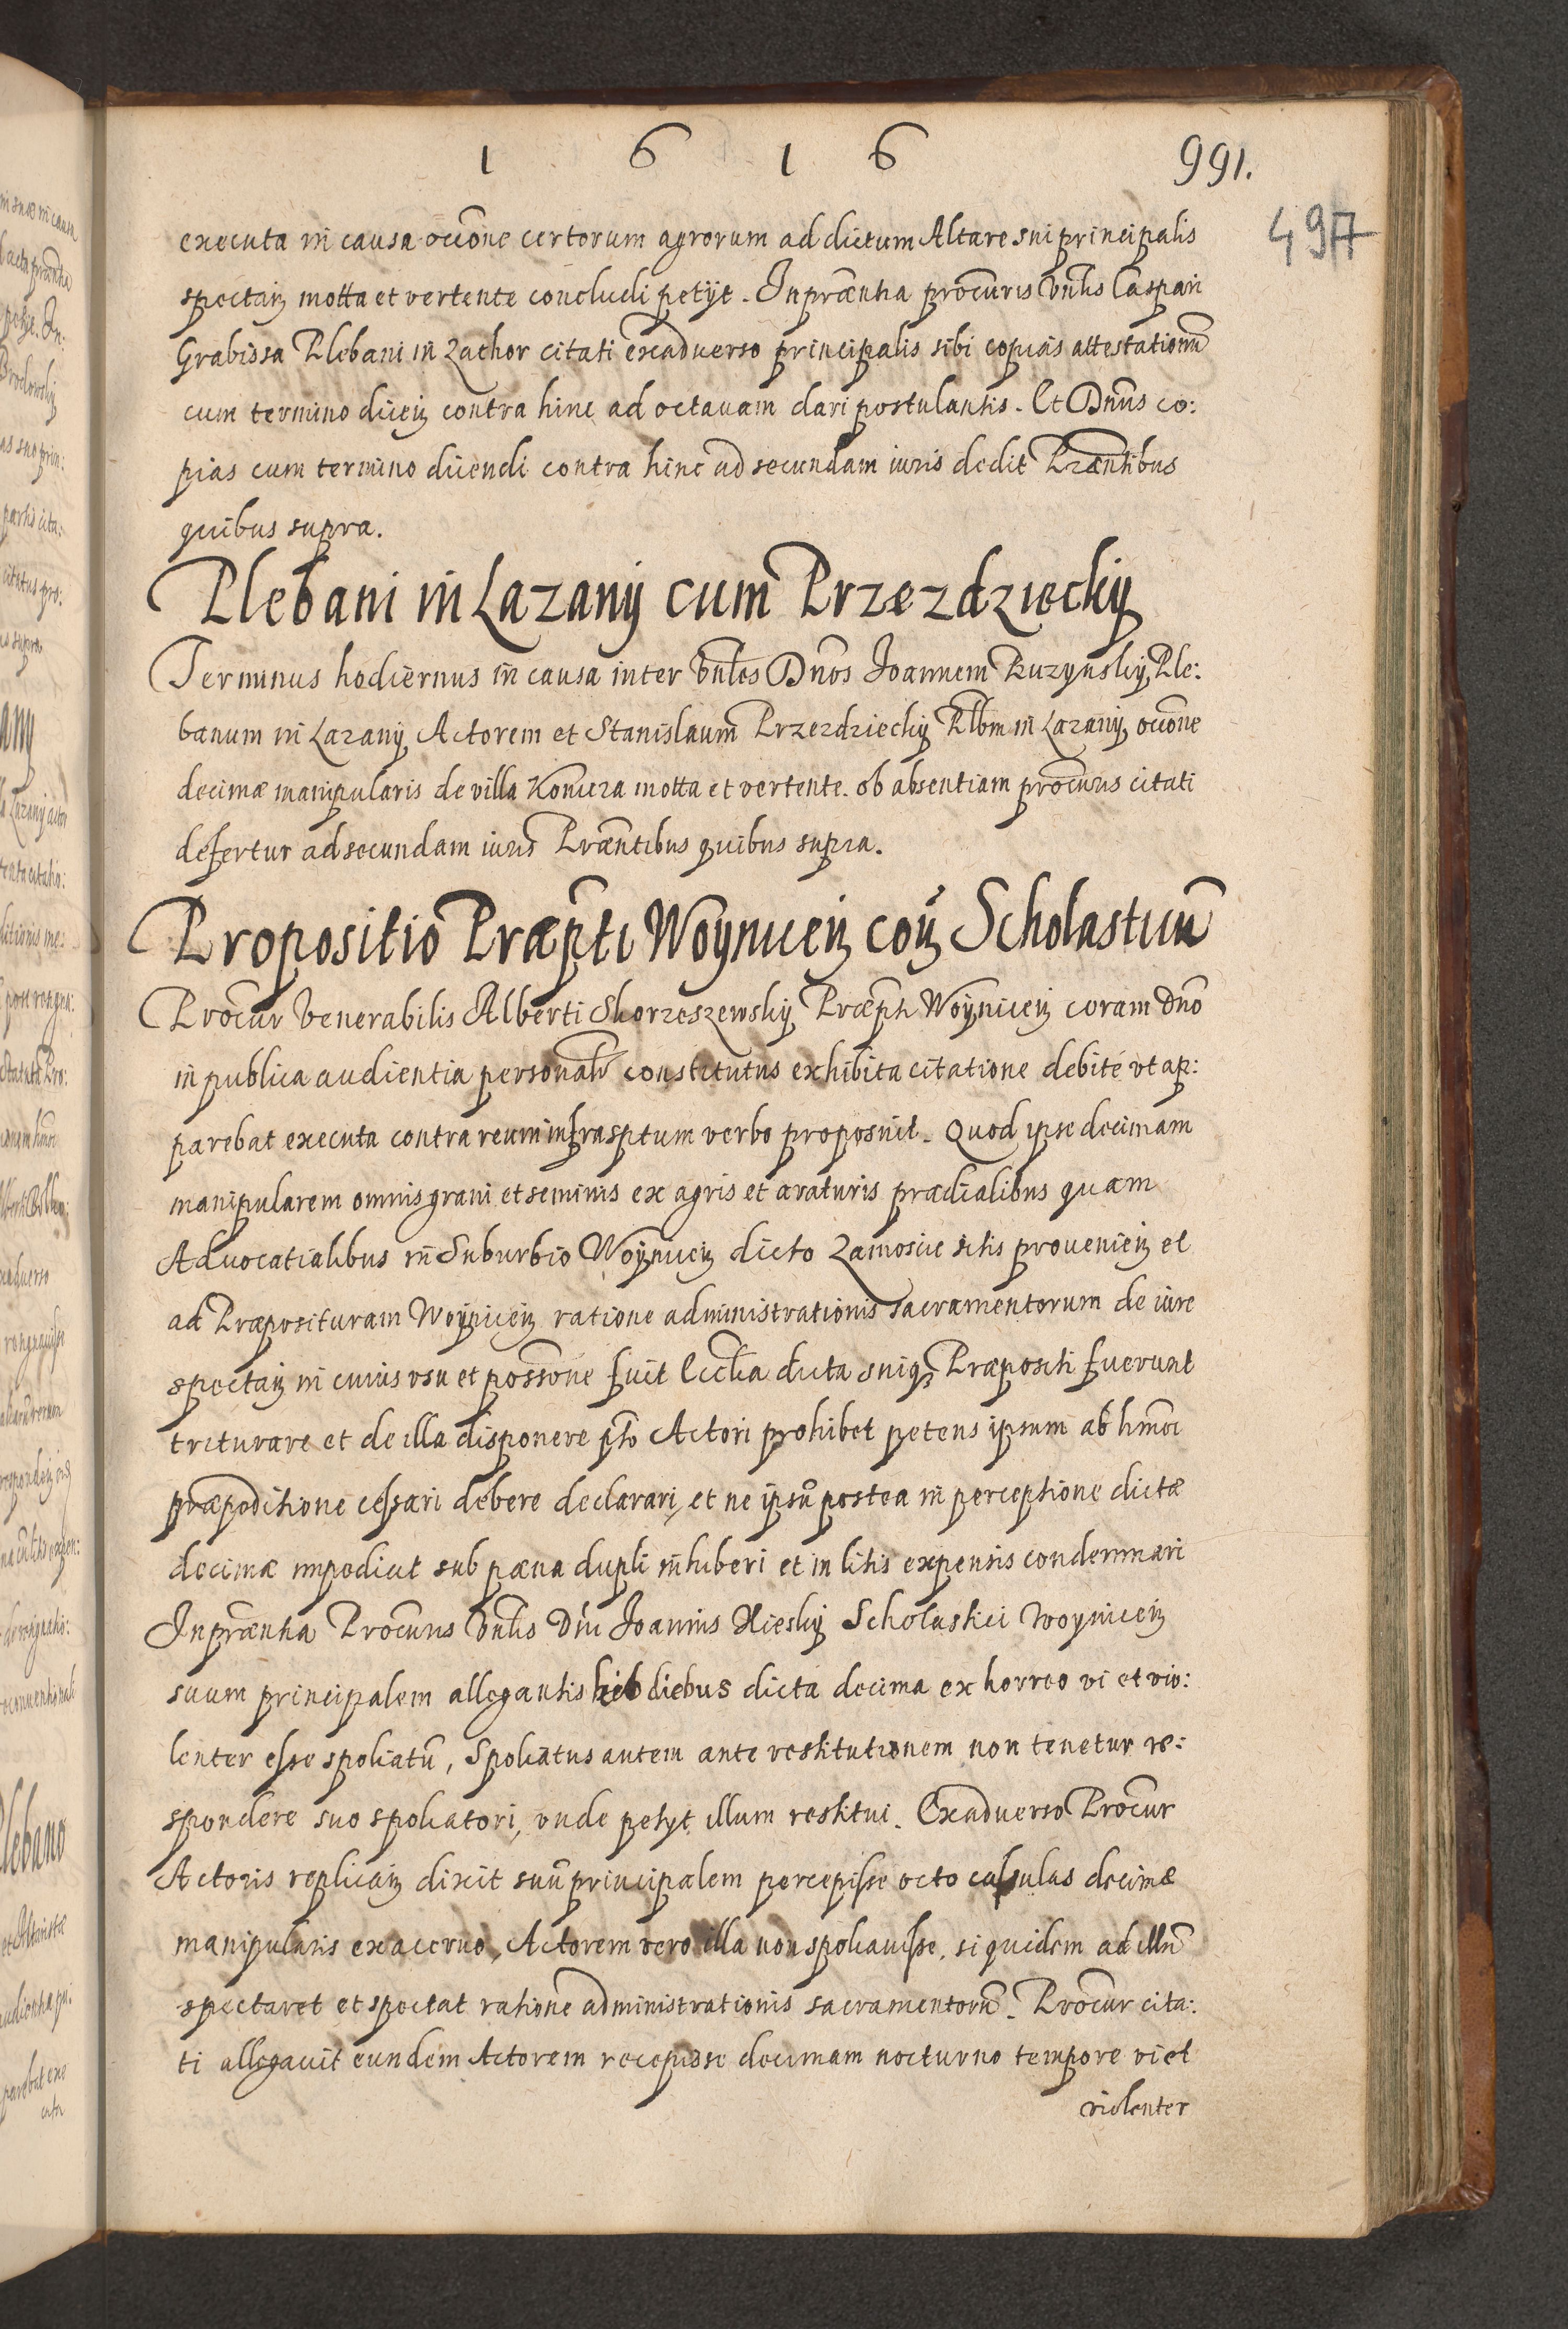 1 6 1 6 991.
497
executa in causa occōne certorum agrorum ad dictum Altare sui principalis
spectań motta et vertente concludi petijt. In præntia procuris Vnlis Caspari
Grabissa Plebani in Zathor citati exaduerso principalis sibi copias attestationū
cum termino diceń contra hinc ad octauam dari postulantis. Et Dnus co:
pias cum termino dicendi contra hinc ad secundam iuris dedit Præntibus
quibus supra.
Plebani in Lazany cum Przezdziecky
Terminus hodiernus in causa inter Vnles Dnos Joannem Ruzynsky Ple:
banum in Lazany Actorem et Stanislaum Przezdziecky Plbm in Lazany occōne
decimæ manipularis de villa Koniza motta et vertente. ob absentiam procuris citati
defertur ad secundam iuris Præntibus quibus supra.
Propositio Præpti Woyniceń coń Scholasticū
Procur Venerabilis Alberti Skorzeszewsky Præpti Woyniceń coram Dno
in publica audientia personalr constitutus exhibita citatione debite vt ap:
parebat executa contra reum infrasptum verbo proposuit. Quod ipse decimam
manipularem omnis grani et seminis ex agris et araturis prædialibus quam
Aduocatialibus in Suburbio Woyniceń dicto Zamoscie sitis prouenień et
ad Præposituram Woyniceń ratione administrationis sacramentorum de iure
spectań in cuius vsu et possōne fuit Ecclia dicta suiq₃ Præpositi fuerunt
triturare et de illa disponere pto Actori prohibet petens ipsum ab hmoi
præpeditione cessari debere declarari, et ne ipsū postea in perceptione dictæ
decimæ impediat sub pæna dupli inhiberi et in litis expensis condemnari
In præntia Procuris Vnlis Dni Joannis Kiesky Scholastici Woyniceń
suum principalem allegantis his diebus dicta decima ex horreo vi et vio:
lenter esse spoliatū, Spoliatus autem ante restitutionem non tenetur re:
spondere suo spoliatori, vnde petyt illum restitui. Exaduerso Procur
Actoris replicań dixit suū principalem percepisse octo capulas decimæ
manipularis ex aceruo, Actorem vero illa non spoliauisse, siquidem ad illū
spectaret et spectat ratione administrationis sacramentorū. Procur cita:
ti allegauit eundem Actorem recepisse decimam nocturno tempore vi et
violenter